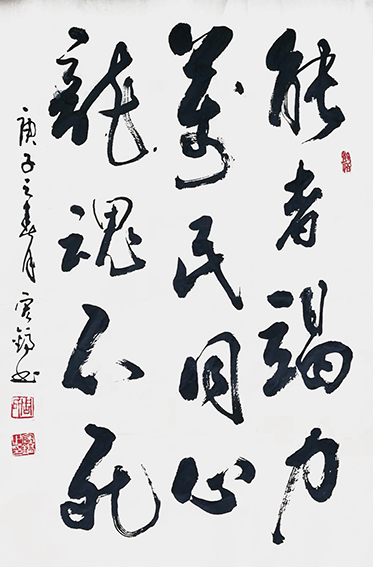 能者竭力
万民同心
龙魂不死
庚子之春月